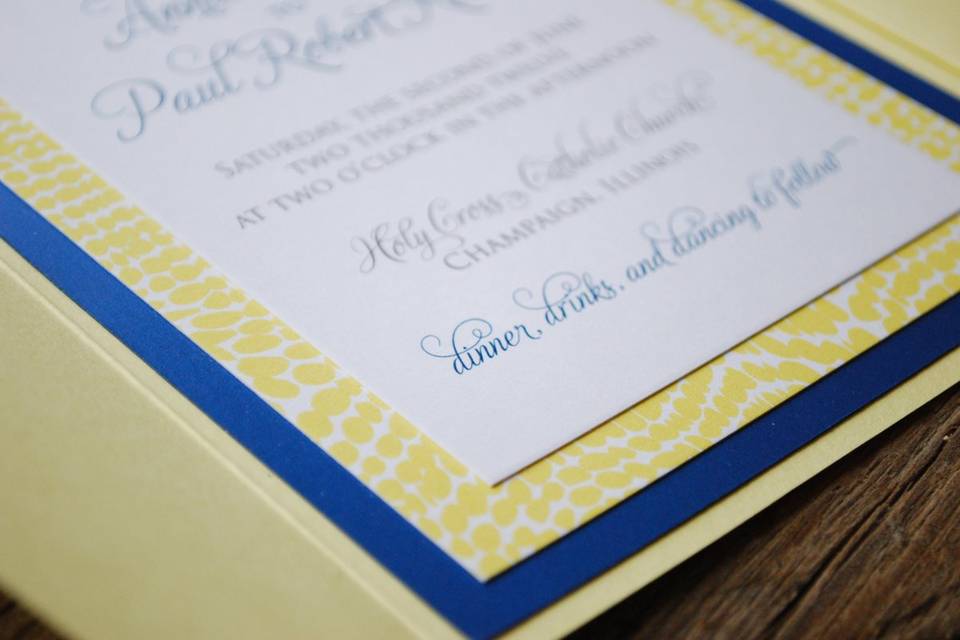 Paul Robert
SATURDAY, THE SECOND OF JUNE
TWO THOUSAND TWELVE
AT TWO O'CLOCK IN THE AFTERNOON
Holy Cross Catholic Church
CHAMPAIGN, ILLINOIS
dinner, drinks, and dancing to follow